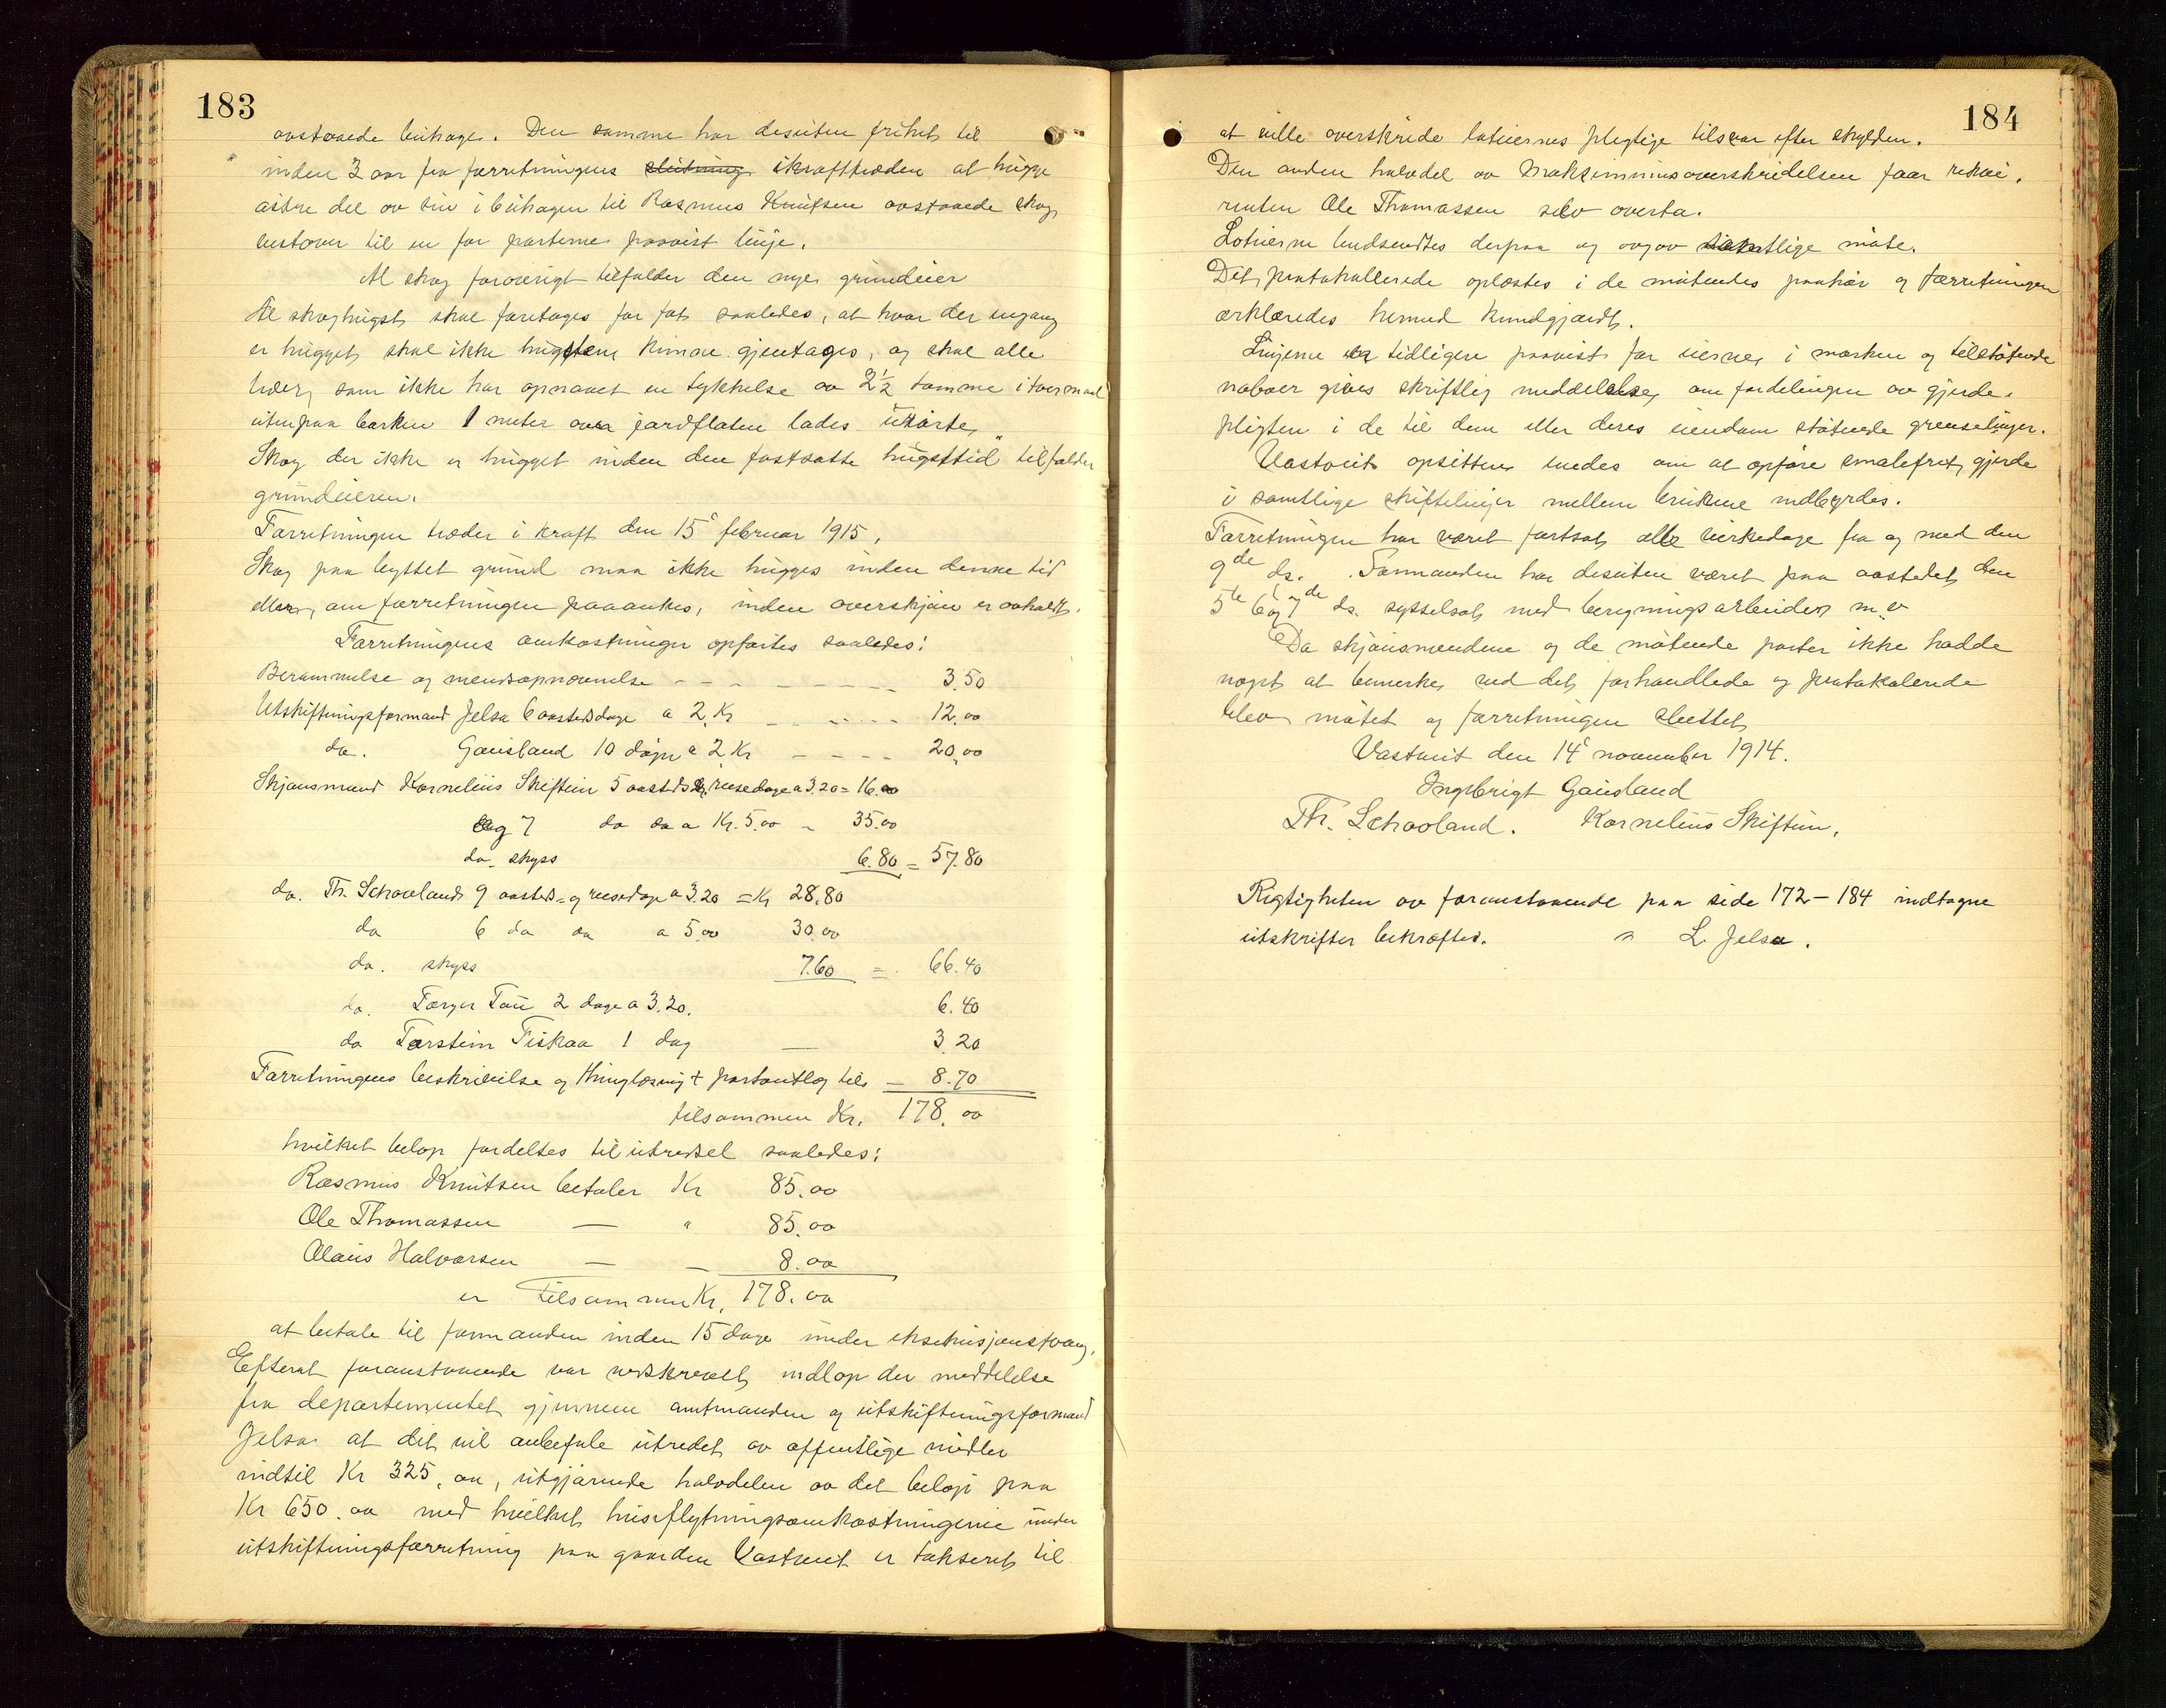 183
avstaaede beithage. Den samme har desuten frihet til
inden 3 aar fra forretningens slutning ikrafttræden at hugge
østre del av sin i beithagen til Rasmus Knutsen avstaaede skog
vestover til en for parterne paavist linje.
Al skog forøvrigt tilfalder den nye grundeier
Al skoghugst skal foretages for fot saaledes, at hvor der engang
er hugget skal ikke hugsten kunne gjentages, og skal alle
trær, som ikke har opnaaet en tykkelse av 2½ tomme i tvermaal
utenpaa barken 1 meter over jordflaten lades urørte,
Skog der ikke er hugget inden den fastsatte hugsttid tilfalder
grundeieren.
Forretningen træder i kraft den 15de februar 1915.
Skog paa byttet grund maa ikke hugges inden denne tid
eller, om forretningen paaankes, inden overskjøn er avholdt.
Forretningens omkostninger opførtes saaledes:
Berammelse og mendsopnævnelse - - - 3.50
Utskiftningsformand Jelsa 6 aastedsdage a 2 Kr - - - 12.00
do. Gausland 10 døgn a 2 Kr - - - - 20.00
Skjønsmand Kornelius Skiftun 5 aasteds & reisedage a 3.20 = 16.00
og 7 do do a Kr. 5.00 - 35.00
do. skyss 6.80 = 57.80
do. Th. Schooland 9 aasteds- og reisedage a 3.20 = Kr 28.80
do 6 do do a 5.00 30.00
do. skyss 7.60 = 66.40
do. Torger Tau 2 dage a 3.20. 6.40
do Torstein Fiskaa 1 dag — 3.20
Forretningens beskrivelse og thinglæsning + portoutlæg tils — 8.70
tilsammen Kr. 178.00
hvilket beløp fordeltes til utredsel saaledes:
Rasmus Knutsen betaler Kr 85.00
Ole Thomassen — " 85.00
Olaus Halvorsen — - 8.00
er tilsammen Kr. 178.00
at betale til formanden inden 15 dage under eksekusjonstvang.
Efterat foranstaaende var nedskrevet indløp der meddelelse
fra departementet gjennem amtmanden og utskiftningsformand
Jelsa at det vil anbefale utredet av offentlige midler
indtil Kr 325.00, utgjørende halvdelen av det beløp paa
Kr 650.00 med hvilket husflytningsomkostningerne under
utskiftningsforretning paa gaarden Vastveit er takseret til
184
at ville overskride lotteiernes pligtige tilsvar efter skylden.
Den anden halvdel av maksimumsoverskridelsen faar rekvi-
renten Ole Thomassen selv overta.
Lotteierne budsendtes derpaa og avgav samtlige møte.
Det protokollerede oplæstes i de møtendes paahør og forretningen
erklæredes hermed kundgjordt.
Linjerne er tidligere paavist for eierne i marken og tilstøtende
naboer gives skriftlig meddelelse om fordelingen av gjerde-
pligten i de til dem eller deres eiendom støtende grenselinjer.
Vastveits opsittere enedes om at opføre smalefrit gjerde
i samtlige skiftelinjer mellem brukene indbyrdes.
Forretningen har været fortsat alle virkedage fra og med den
9de ds. Formanden har desuten været paa aastedet den
5te 6te og 7de ds. sysselsat med beregningsarbeider m.v
Da skjønsmendene og de møtende parter ikke hadde
noget at bemerke ved det forhandlede og protokolerede
blev møtet og forretningen sluttet
Vastveit den 14de november 1914.
Ingebrigt Gausland
Th. Schooland. Kornelius Skiftun.
Rigtigheten av foranstaaende paa side 172-184 indtagne
utskrifter bekræftes. L. Jelsa.